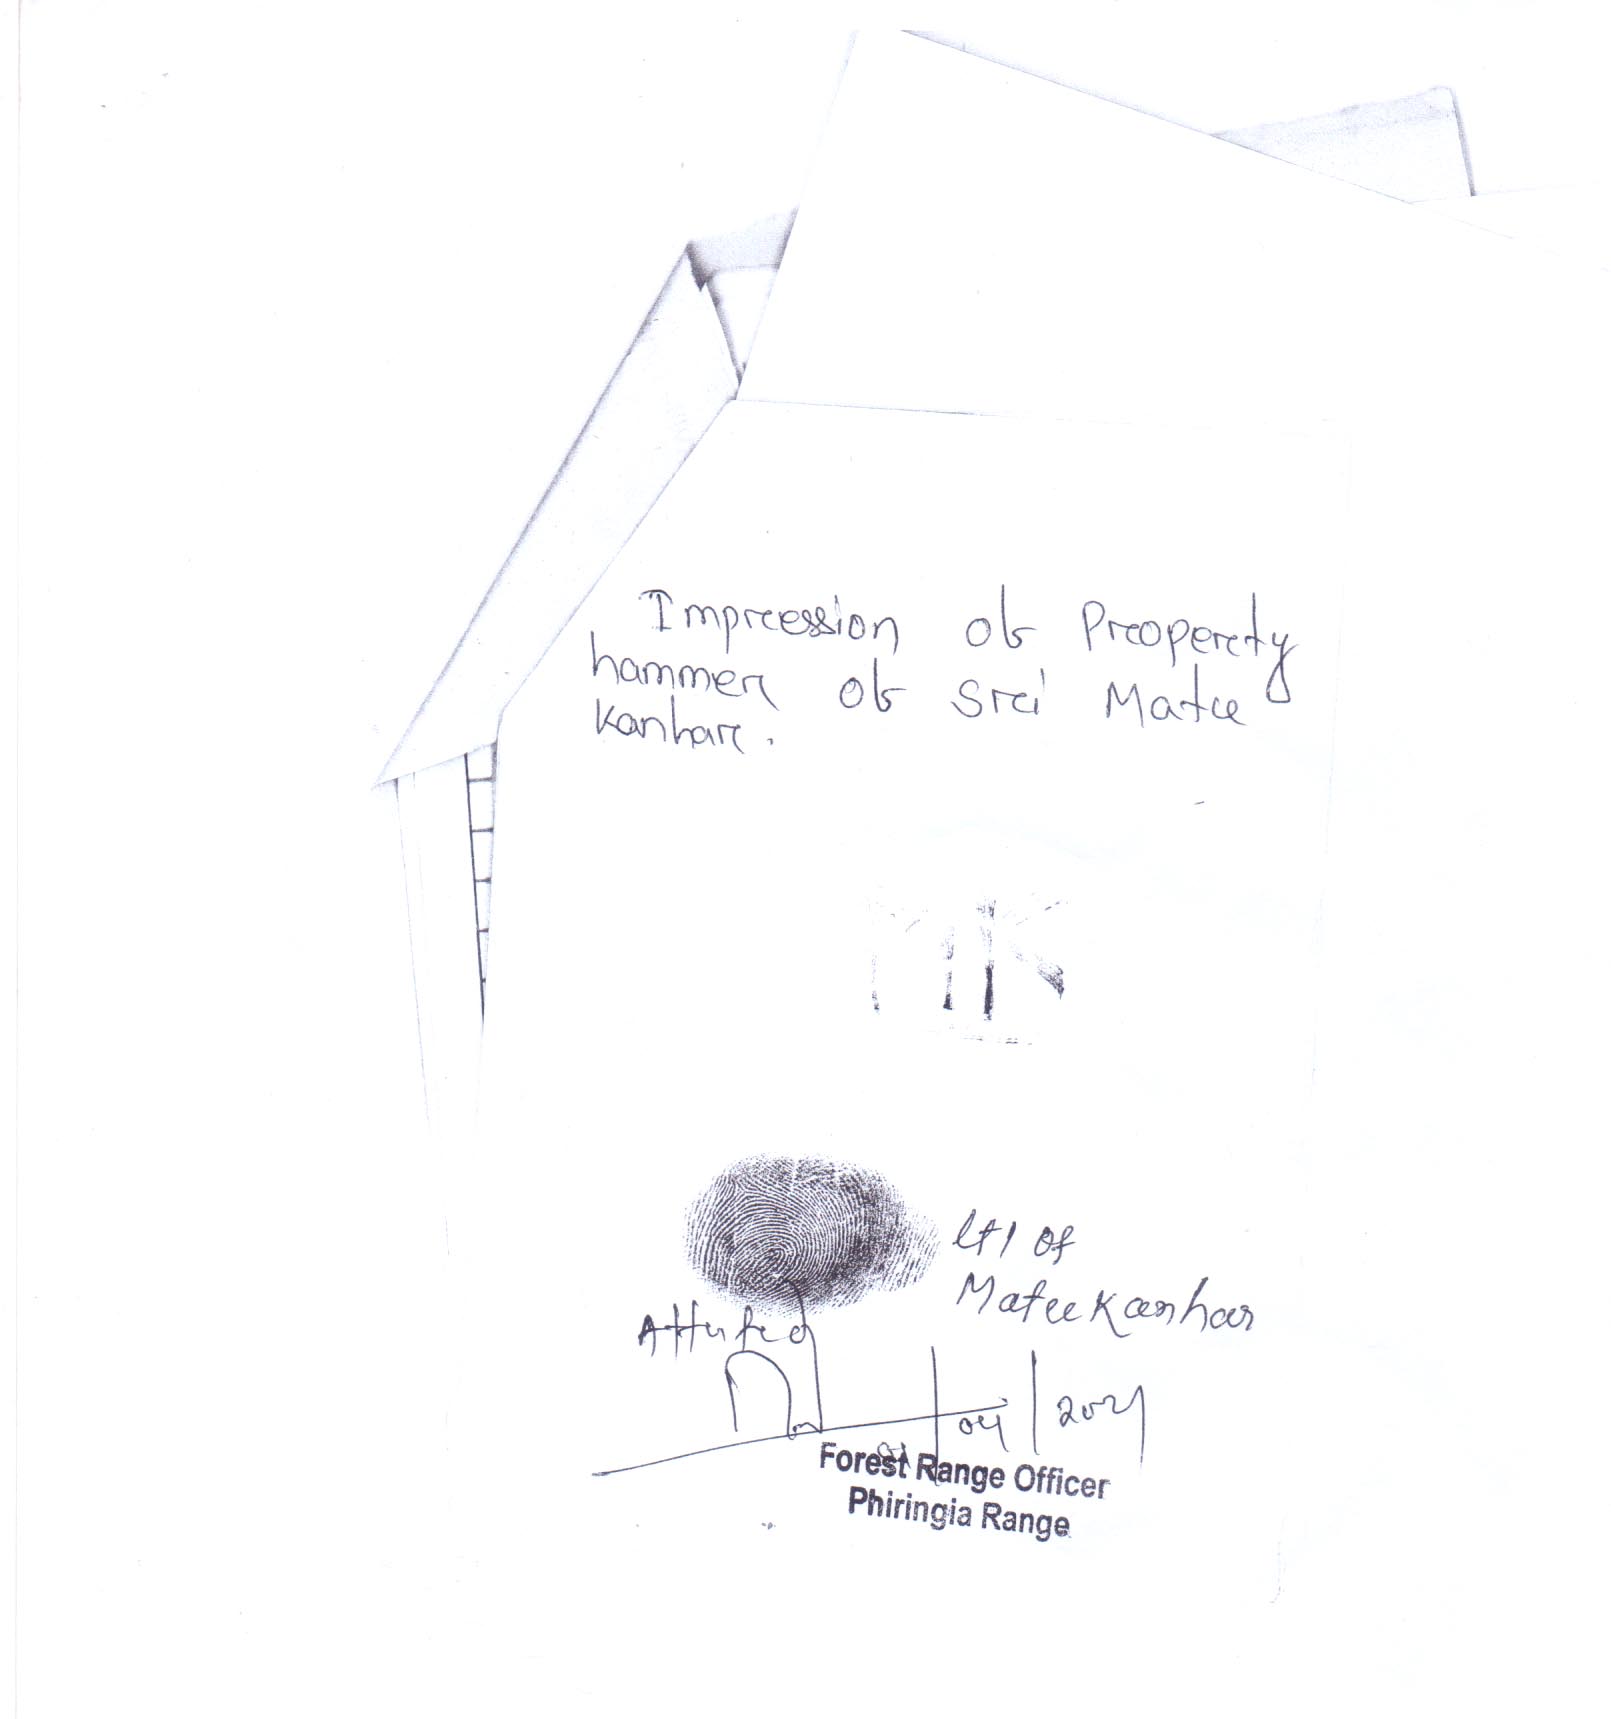 Impression of Property
hammer of Sri Matee
Kanhar.
MK
LTI of
Matee Kanhar
Attested
/04/2021
Forest Range Officer
Phiringia Range